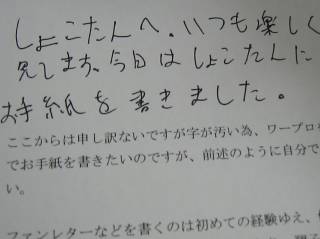 しょこたんへ。いつも楽しく
見てます。今日はしょこたんに
お手紙を書きました。
ここからは申し訳ないですが字が汚い為、ワープロ
でお手紙を書きたいのですが、前述のように自分で
い。
ファンレターなどを書くのは初めての経験ゆえ、